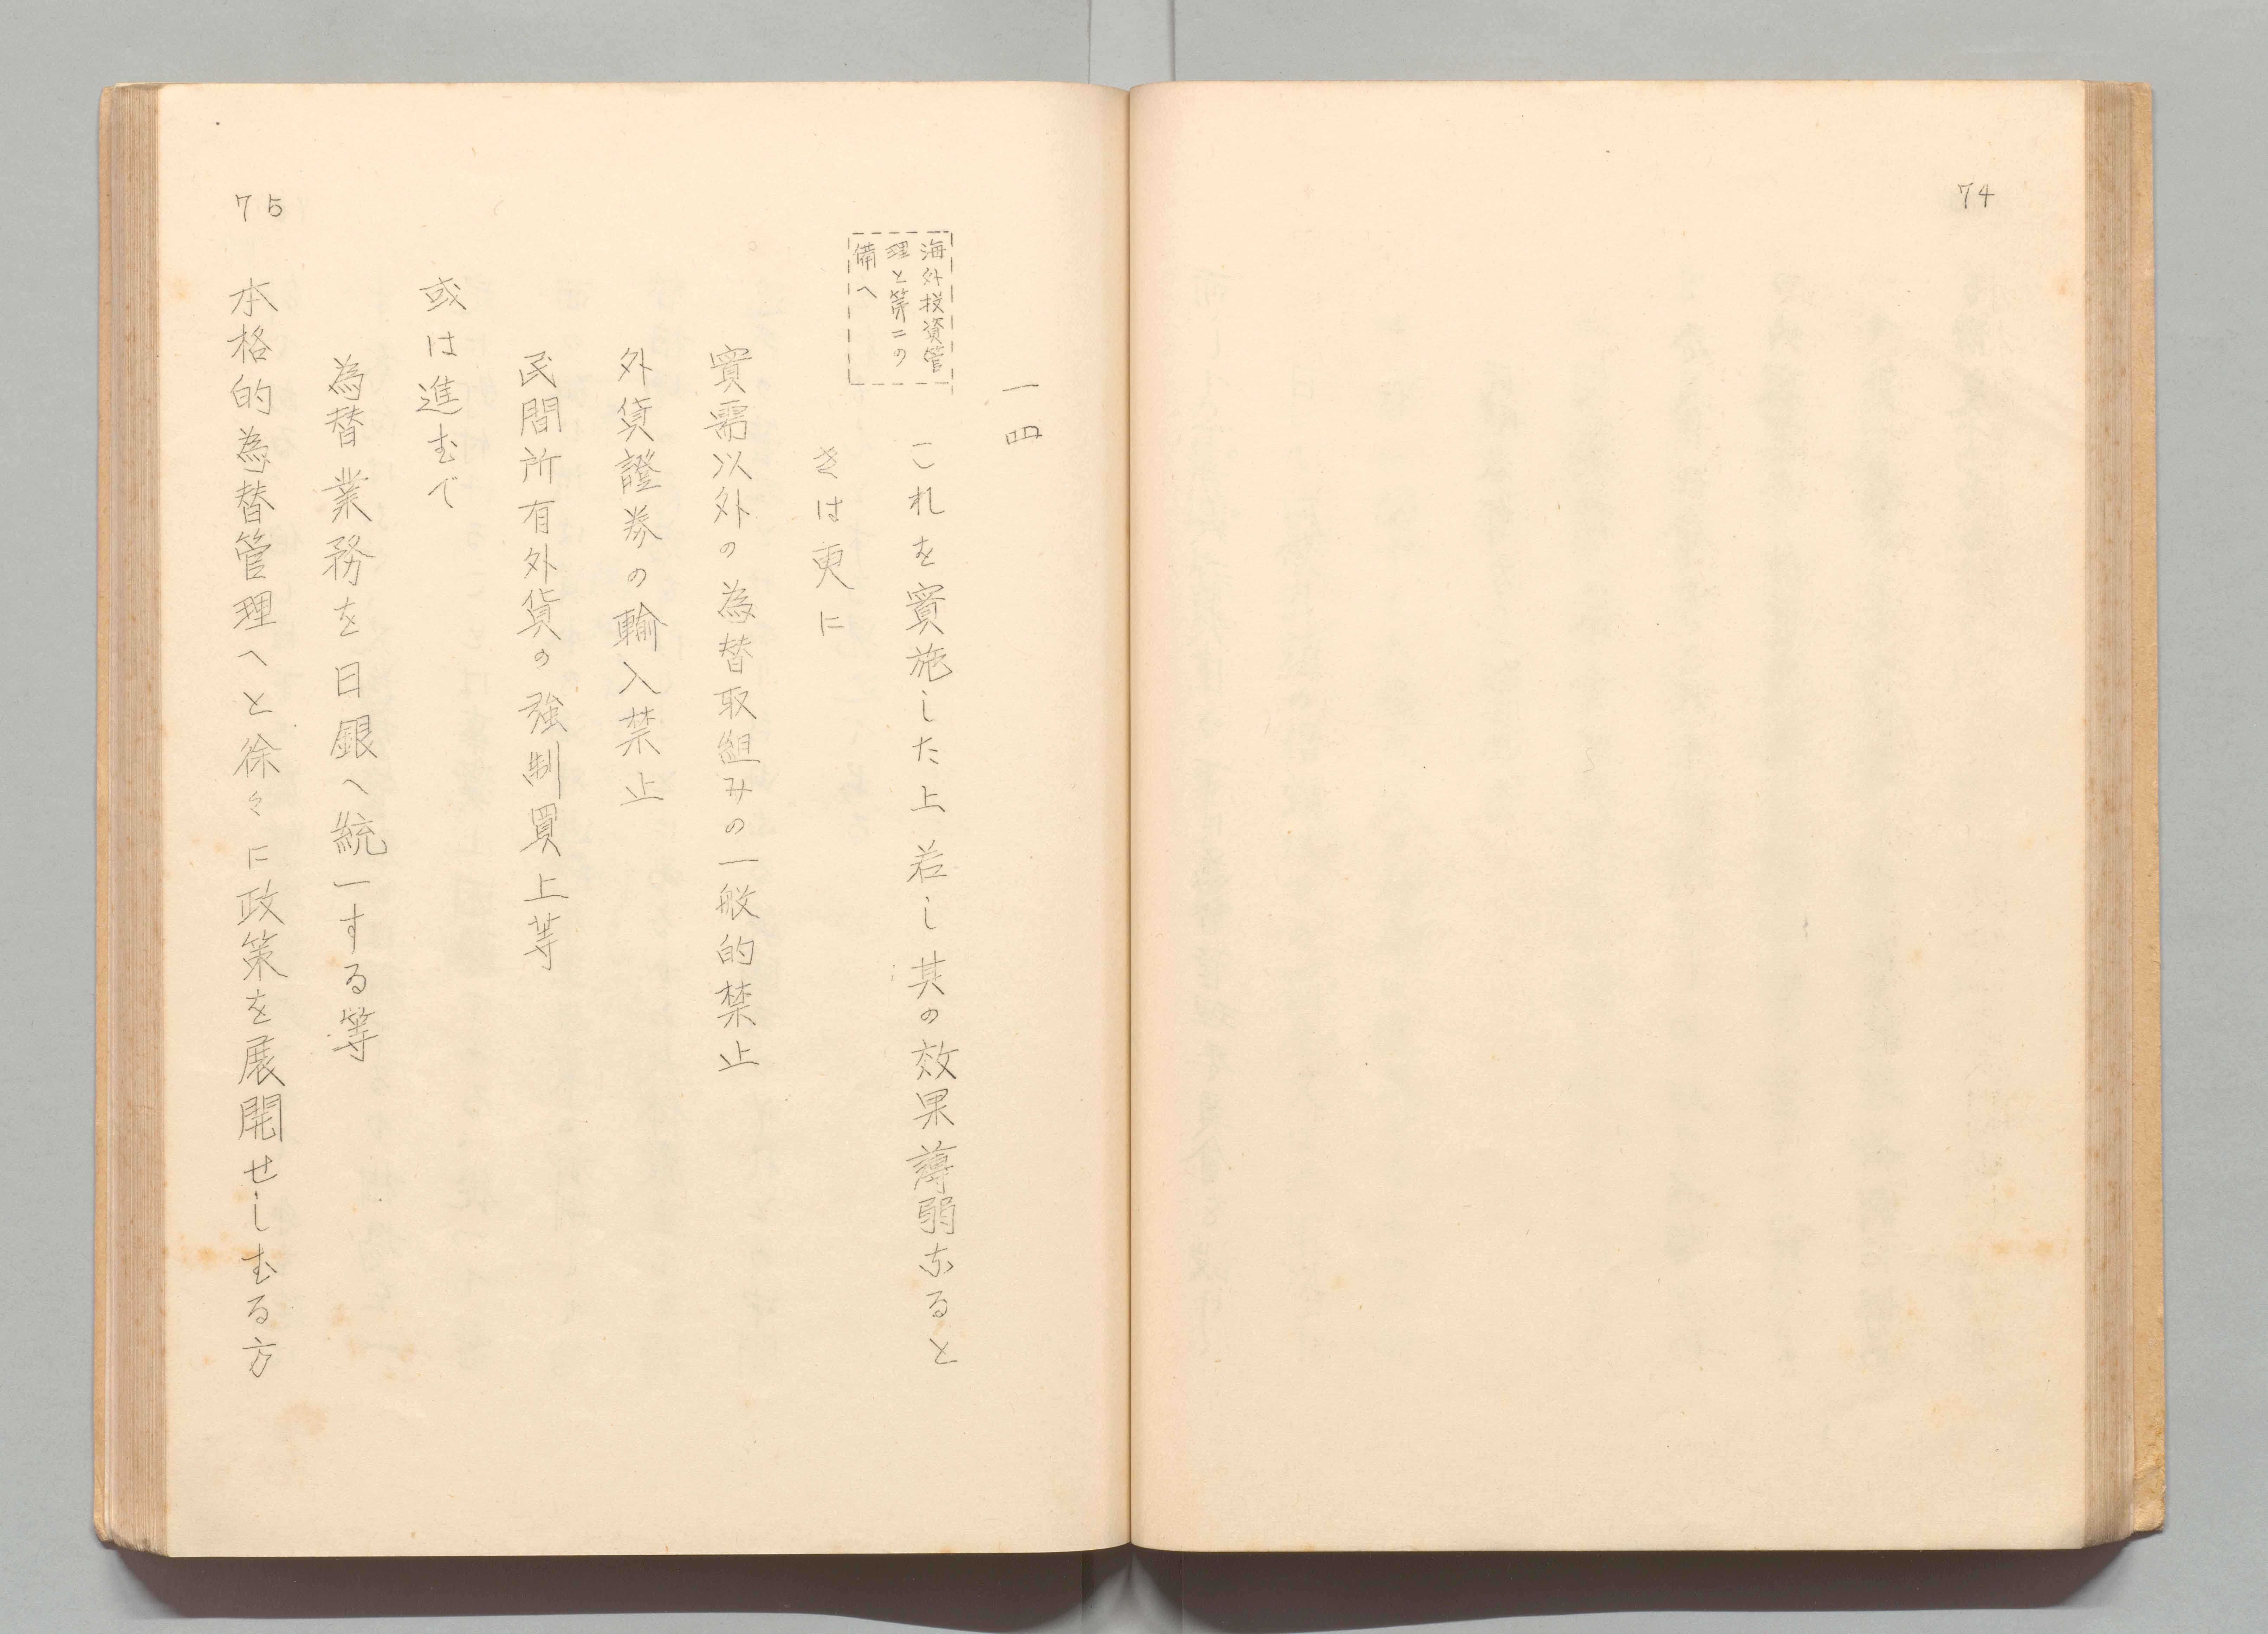 74
一四
海外投資管
理と第二の
備へ
これを實施した上若し其の効果薄弱なると
きは更に
實需以外の為替取組みの一般的禁止
外貨證券の輸入禁止
民間所有外貨の強制買上等
或は進むで
為替業務を日銀へ統一する等
本格的為替管理へと徐々に政策を展開せしむる方
75